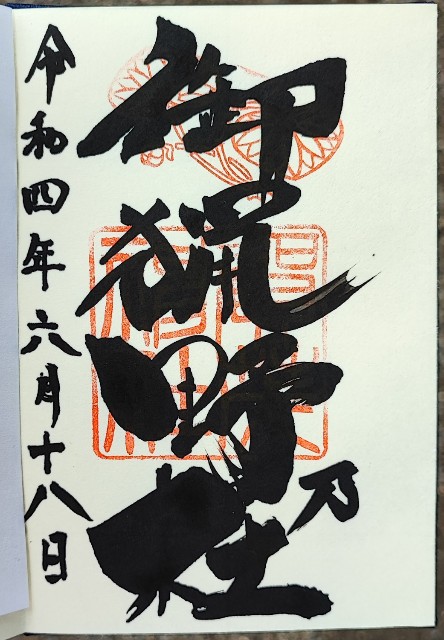 御猟野乃杜
令和四年六月十八日